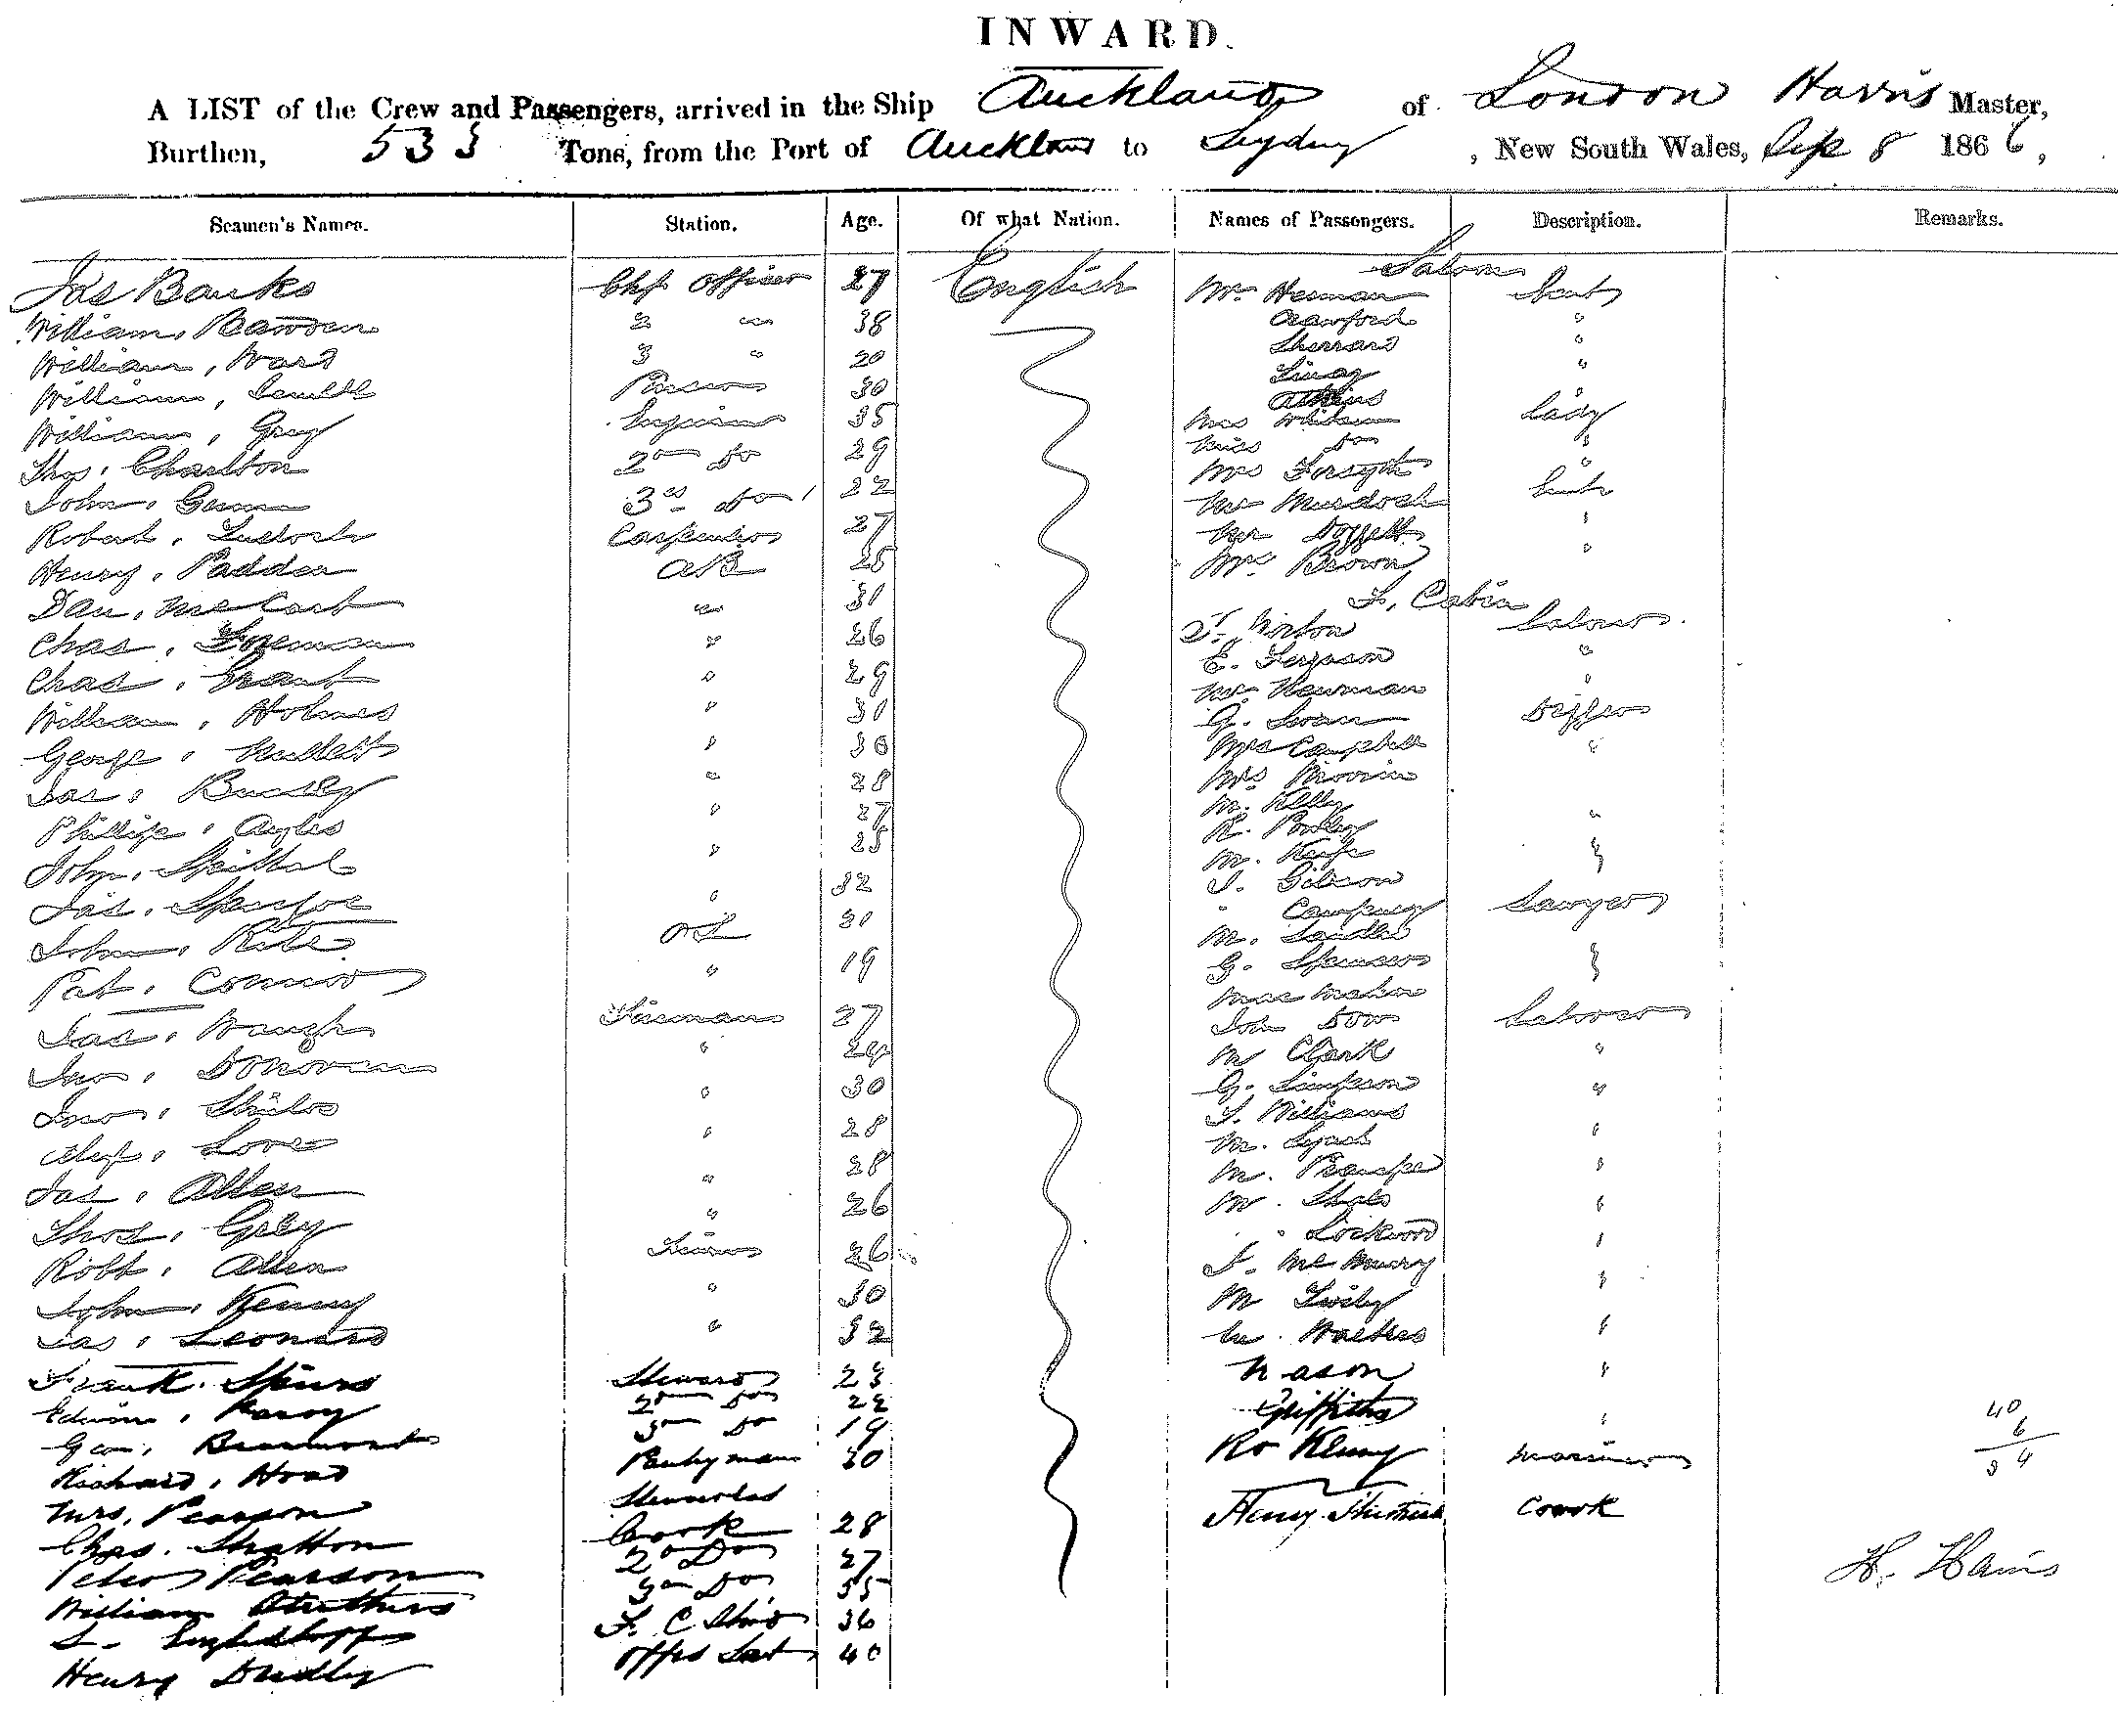 INWARD.
A LIST of the Crew and Passengers, arrived in the Ship Auckland of London Harris Master,
Burthen, 533 Tons, from the Port of Auckland to Sydney, New South Wales, Sep 8 1866,
Seamen's Names. Station. Age. Of what Nation. Names of Passengers. Description. Remarks.
Saloon
Jas Banks Chf Officer 27 English Mr Hesman Gent
William, Bawden 2 " 38 Crawford "
William, Ward 3 " 20 Sherrard "
William, Purser 30 "
William, Gray Engineer 35 Atkins
Thos. Charlton 2nd Do 29 Mrs Lady
John, Gunn 3rd Do 22 Miss Do "
Robert, Carpenter 27 Mrs Forsyth "
Henry, Padden AB 25 Mr Murdoch Gent
Dan, McCart " 31 Mr Doggett "
Chas, Foreman " 26 Mrs Brown "
F. Cabin
Chas, Grant " 29 T. Norton Laborer
William, Holmes " 31 E. Ferguson "
George, Mullett " 30 Mr Newman "
Jas, " 28 G. Swan Digger
Phillip, Ayles " 27 Mrs Campbell "
John, Spittal " 25 Mrs
Jas, 32 M. Kelly
John, OS 31 R. "
Pat, Connor " 19 M. Keefe "
Jas, Waugh Firemans 27 J. Gibson
Jno, Donovan " 24 " Sawyer
Jno, Shiels " 30 M.
Alex, Love " 28 G. Spencer "
Jas, Allen " 28 MacMahon
Thos, Grey " 26 John Dow Laborer
Robt, Allen 26 M Clark "
John, Kenny " 30 G. Simpson "
Jas, Leonard " 32 T. Williams
Frank. Spiers Steward 23 M. Lynch "
Edwin, 2nd Do 22 M. "
Geo, Beaumont 3rd Do 19 M. "
Richard, Hoad Pantryman 30 " Lockwood "
Mrs, Pearson Stewardess F. "
Chas. Stratton Cook 28 M "
Peter Pearson 2nd Do 27 W. Walters "
William Struthers 3rd Do 35 Nason "
F. C Stwd 36 Griffiths "
Henry Dudley Offrs Sert 40 Ro Kenny Mariner
Henry Cook
40
6
34
H. Harris